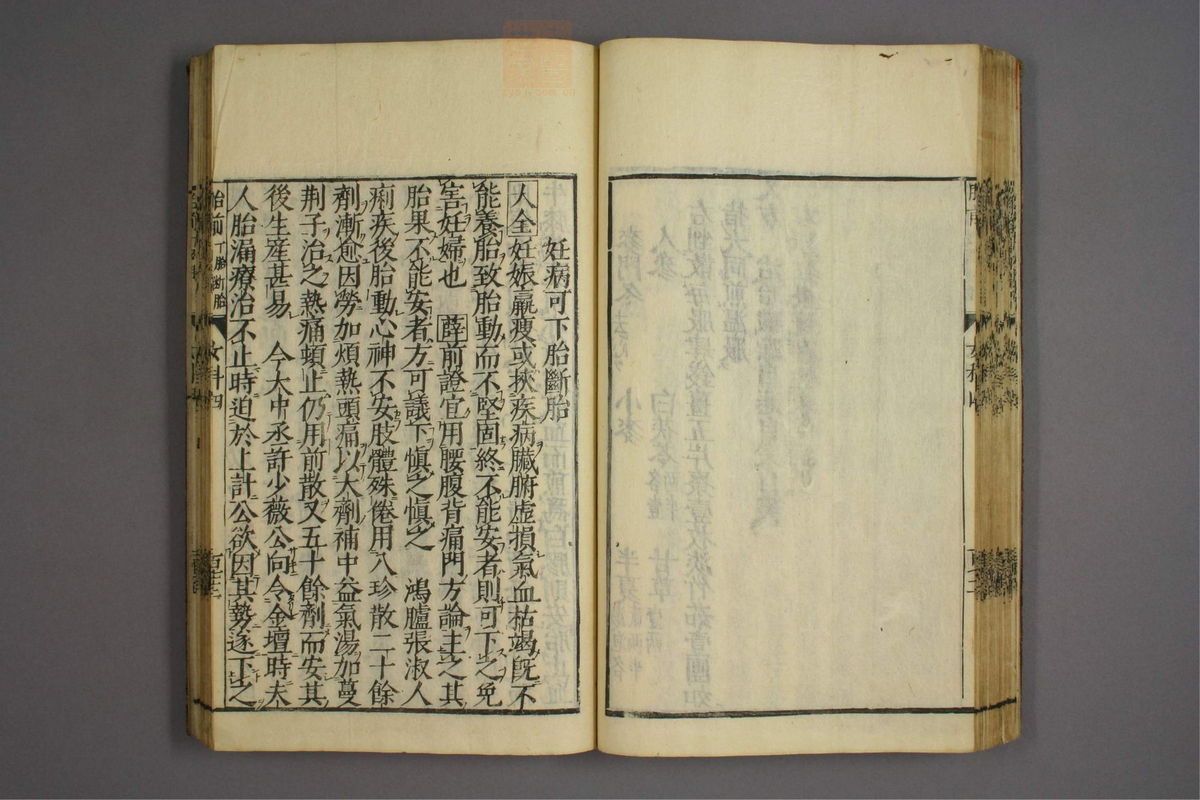 妊病可下胎斷胎
大全妊娠羸瘦或挾疾病臟腑虛損氣血枯竭旣不
能養胎致胎動而不堅固終不能安者則可下之免
害妊婦也 薛前證宜用腰腹背痛門方論主之其
胎果不能安者方可議下愼之愼之 鴻臚張淑人
痢疾後胎動心神不安肢體殊倦用八珍散二十餘
劑漸愈因勞加煩熱頭痛以大劑補中益氣湯加蔓
荆子治之熱痛頓止仍用前散又五十餘劑而安其
後生產甚易 今大中丞許少薇公向令金壇時夫
人胎漏療治不止時迫於上計公欲因其勢逐下之
胎前 下胎斷胎 女科四